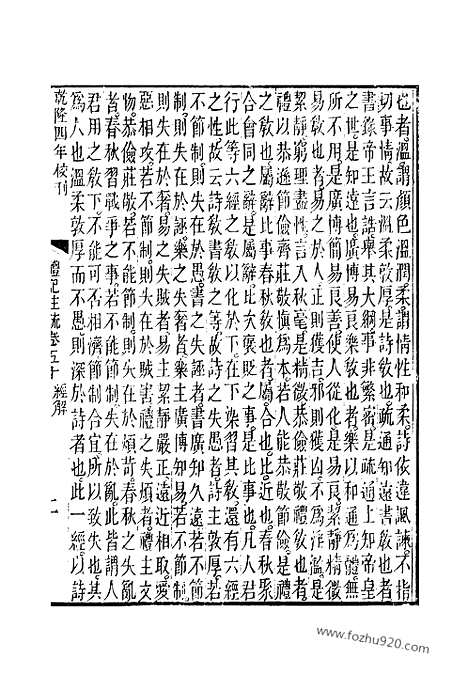 也者溫謂顔色溫潤柔謂情性和柔詩依違諷諫不指
切事情故云溫柔敦厚是詩敎也疏通知遠書敎也者
書錄帝王言誥舉其大綱事非繁密是疏通上知帝皇
之世是知遠也廣博易良樂敎也者樂以和通爲體無
所不用是廣博簡易良善使人從化是易良絜靜精微
易敎也者易之於人正則獲吉邪則獲凶不爲淫濫是
絜靜窮理盡性言入秋毫是精微恭儉莊敬禮敎也者
禮以恭遜節儉齊莊敬愼爲本若人能恭敬節儉是禮
之敎也屬辭比事春秋敎也者屬合也比近也春秋聚
合會同之辭是屬辭比次襃貶之事是比事也凡人君
行此等六經之敎以化於下在下染習其敎還有六經
之性故云詩敎書敎之等故詩之失愚者詩主敦厚若
不節制則失在於愚書之失誣者書廣知久遠若不節
制則失在於誣樂之失奢者樂主廣博和易若不節制
則失在於奢易之失賊者易主絜靜嚴正遠近相取愛
惡相攻若不節制則失在於賊害禮之失煩者禮主文
物恭儉莊敬若不能節制則失在於煩苛春秋之失亂
者春秋習戰爭之事若不能節制失在於亂此皆謂人
君用之敎下不能可否相濟節制合宜所以致失也其
爲人也溫柔敦厚而不愚則深於詩者也此一經以詩
乾隆四年校刊
禮記注疏卷五十 經解
www.fozhu920.com